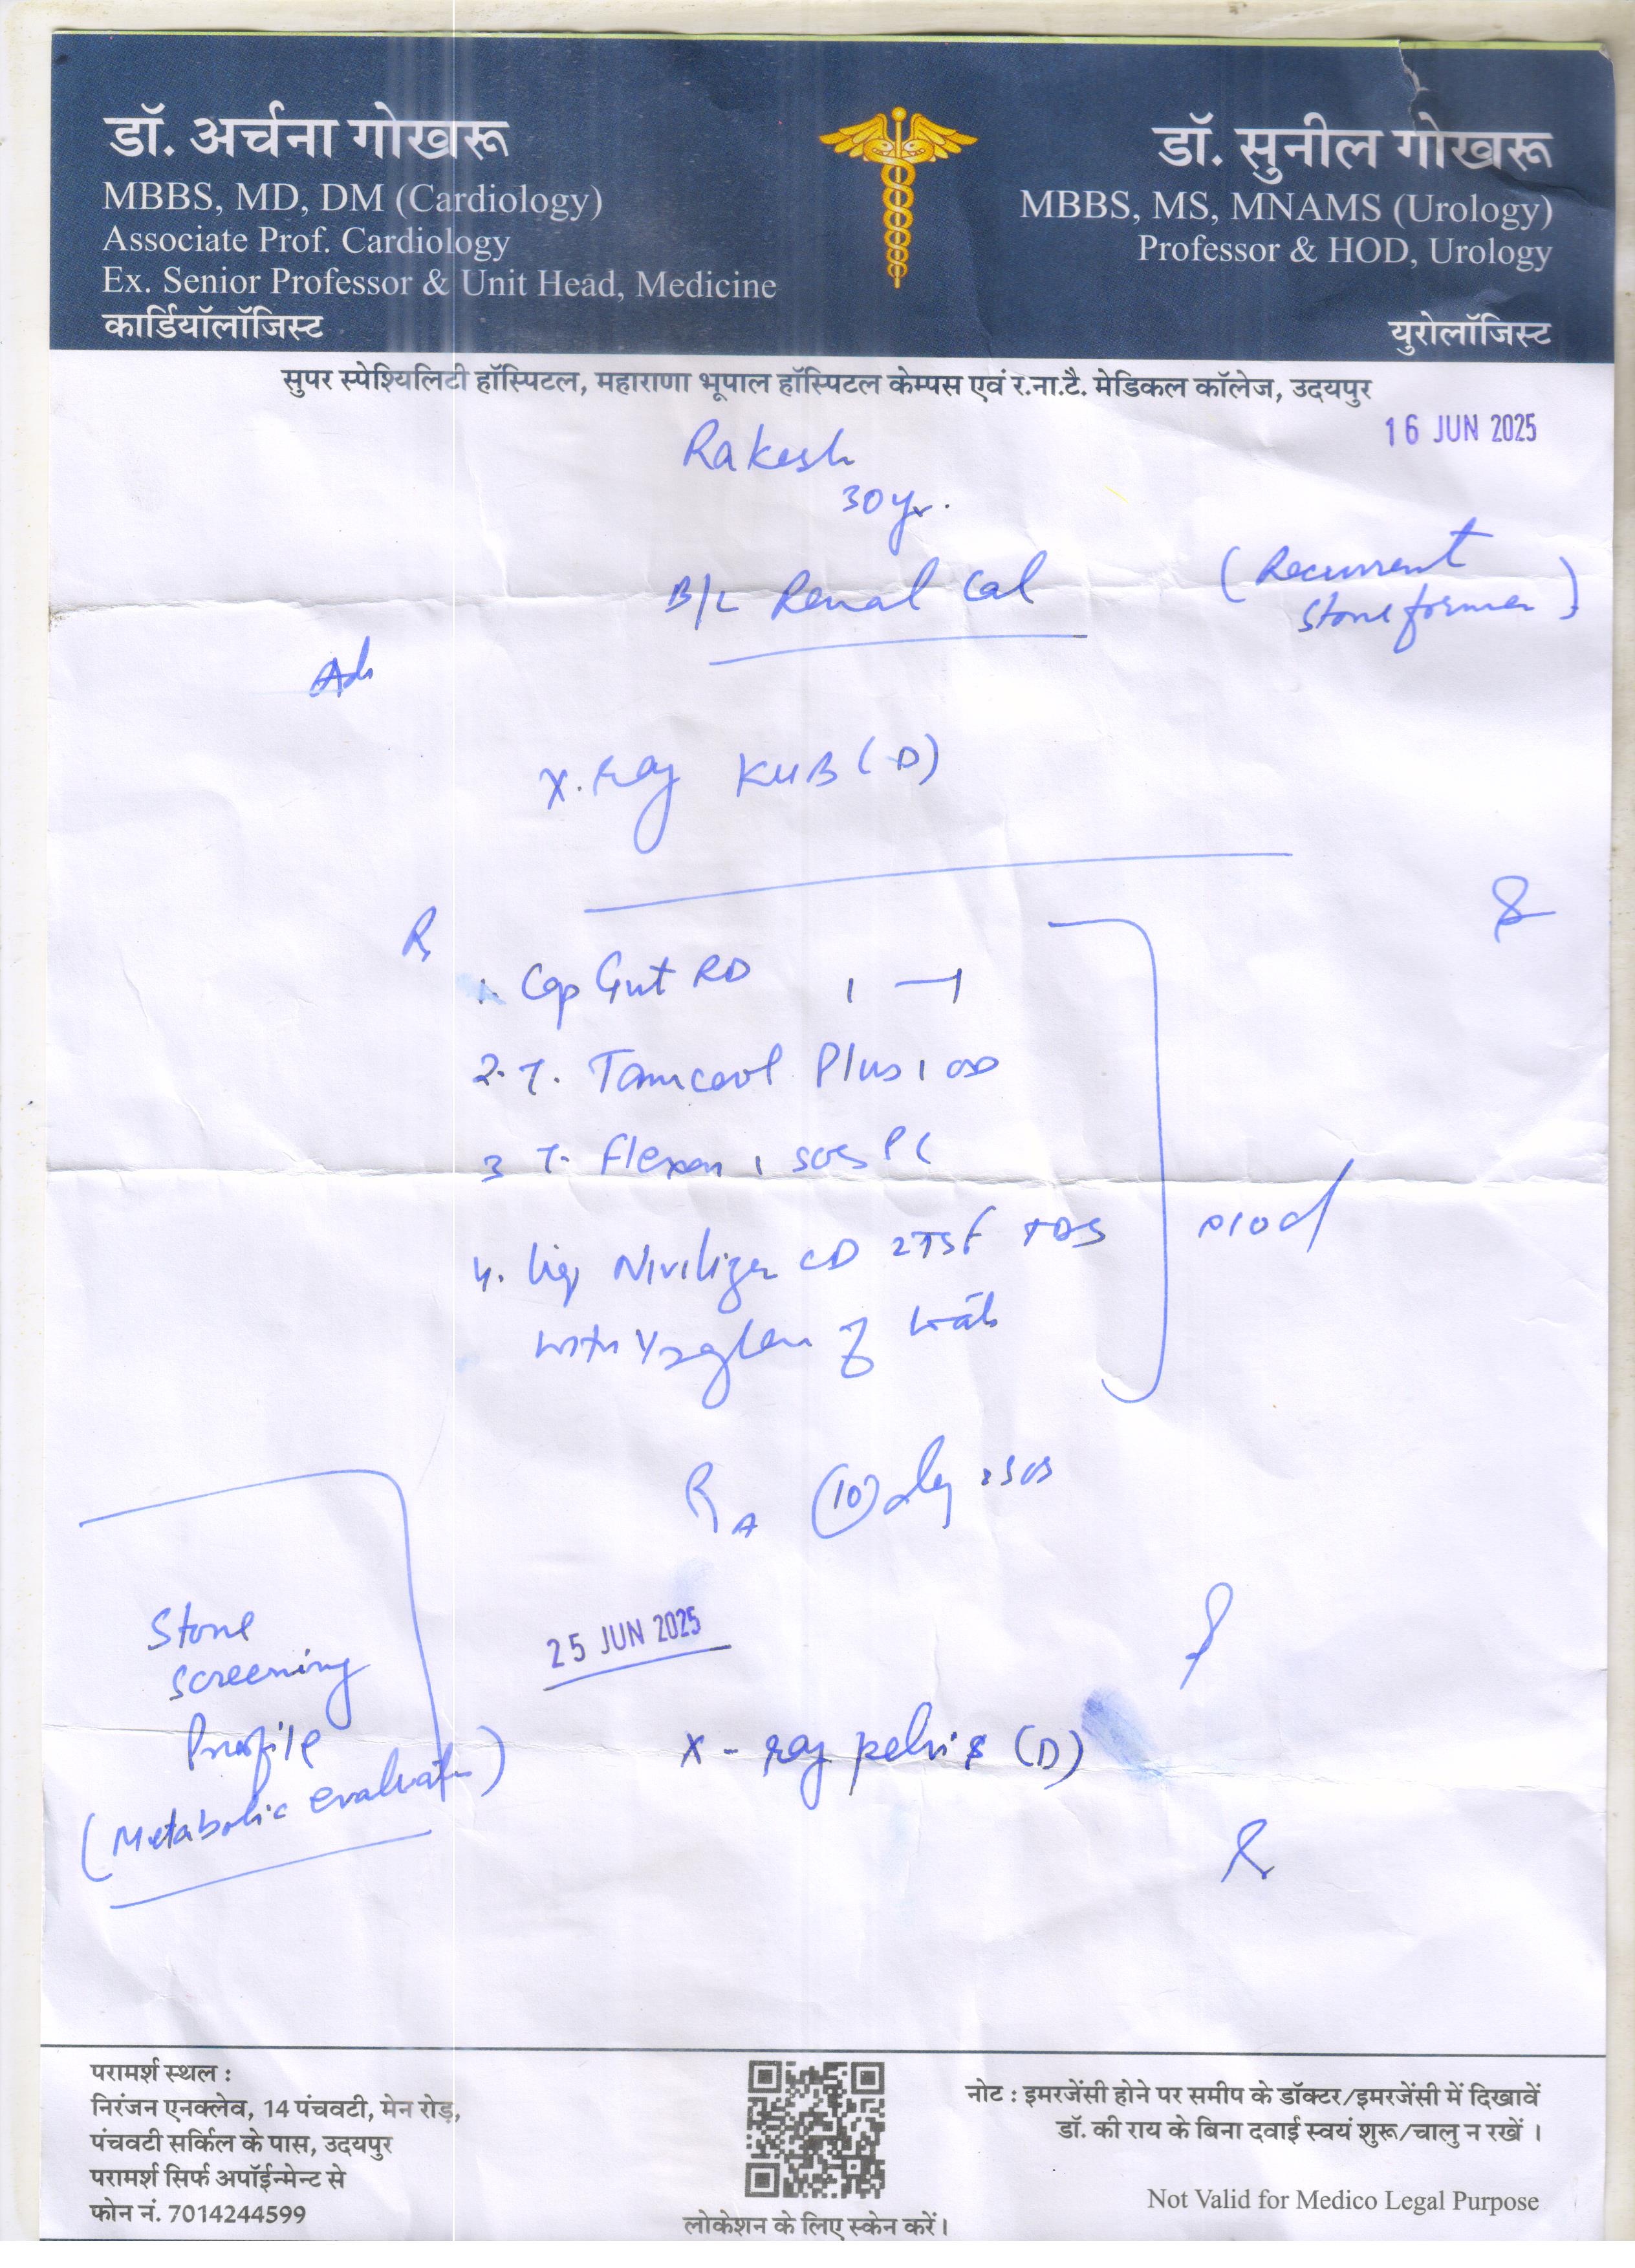 डॉ. अर्चना गोखरू
MBBS, MD, DM (Cardiology)
Associate Prof. Cardiology
Ex. Senior Professor & Unit Head, Medicine
कार्डियॉलॉजिस्ट
डॉ. सुनील गोखरू
MBBS, MS, MNAMS (Urology)
Professor & HOD, Urology
युरोलॉजिस्ट
सुपर स्पेश्यिलिटी हॉस्पिटल, महाराणा भूपाल हॉस्पिटल केम्पस एवं र.ना.टै. मेडिकल कॉलेज, उदयपुर
16 JUN 2025
Rakesh
30 yr.
B/L Renal Cal
(Recurrent
stone former)
X-ray KUB (D)
1. Cap Gut RD 1 — 1
2. T. Tamcool Plus 1 OD
3 T. Flexon 1 SOS PC
4. Liq 2TSF TDS
with 1/2 glass of
(10) day SOS
Stone
screening
Profile
(Metabolic evaluation)
25 JUN 2025
X-ray pelvis (D)
परामर्श स्थल :
निरंजन एनक्लेव, 14 पंचवटी, मेन रोड़,
पंचवटी सर्किल के पास, उदयपुर
परामर्श सिर्फ अपॉईन्मेन्ट से
फोन नं. 7014244599
लोकेशन के लिए स्केन करें।
नोट : इमरजेंसी होने पर समीप के डॉक्टर/इमरजेंसी में दिखावें
डॉ. की राय के बिना दवाई स्वयं शुरू/चालु न रखें ।
Not Valid for Medico Legal Purpose